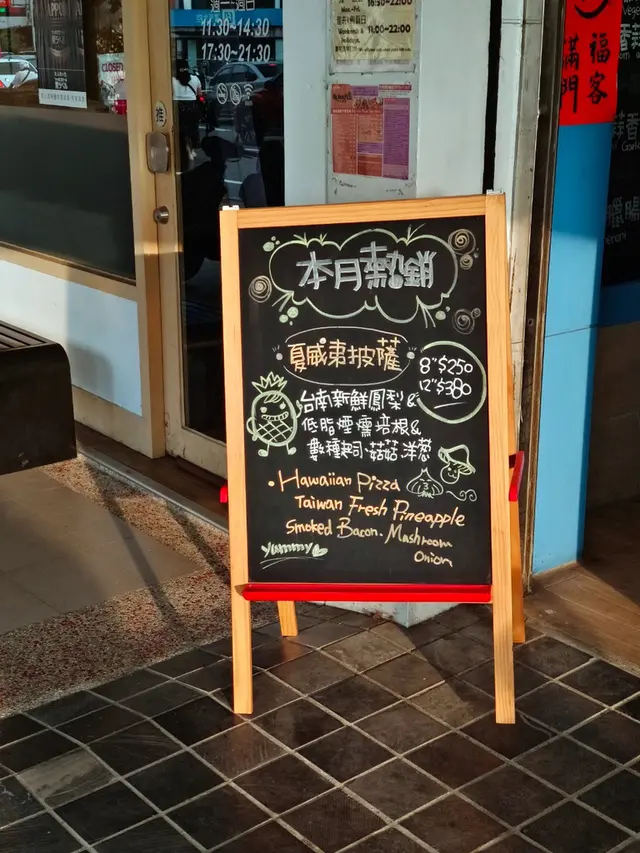 週一~週日
11:30-14:30
17:30-21:30
推
CLOSED
Mon.-Fri.
16:30-22:00
Weekends &
Holidays
11:00-22:00
福客
滿門
本月熱銷
夏威夷披薩
8"$250
12"$380
台南新鮮鳳梨&
低脂煙燻培根&
數種起司·菇菇洋蔥
·Hawaiian Pizza
Taiwan Fresh Pineapple
Smoked Bacon. Mushroom
Onion
Yummy